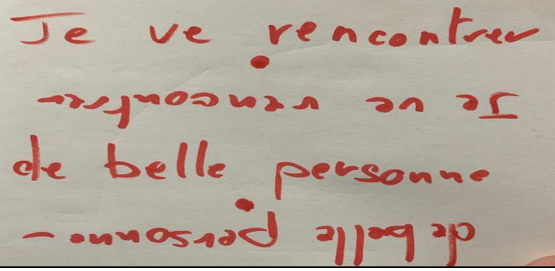 Je ve rencontrer
Je ve rencontrer
de belle personne
de belle personne -